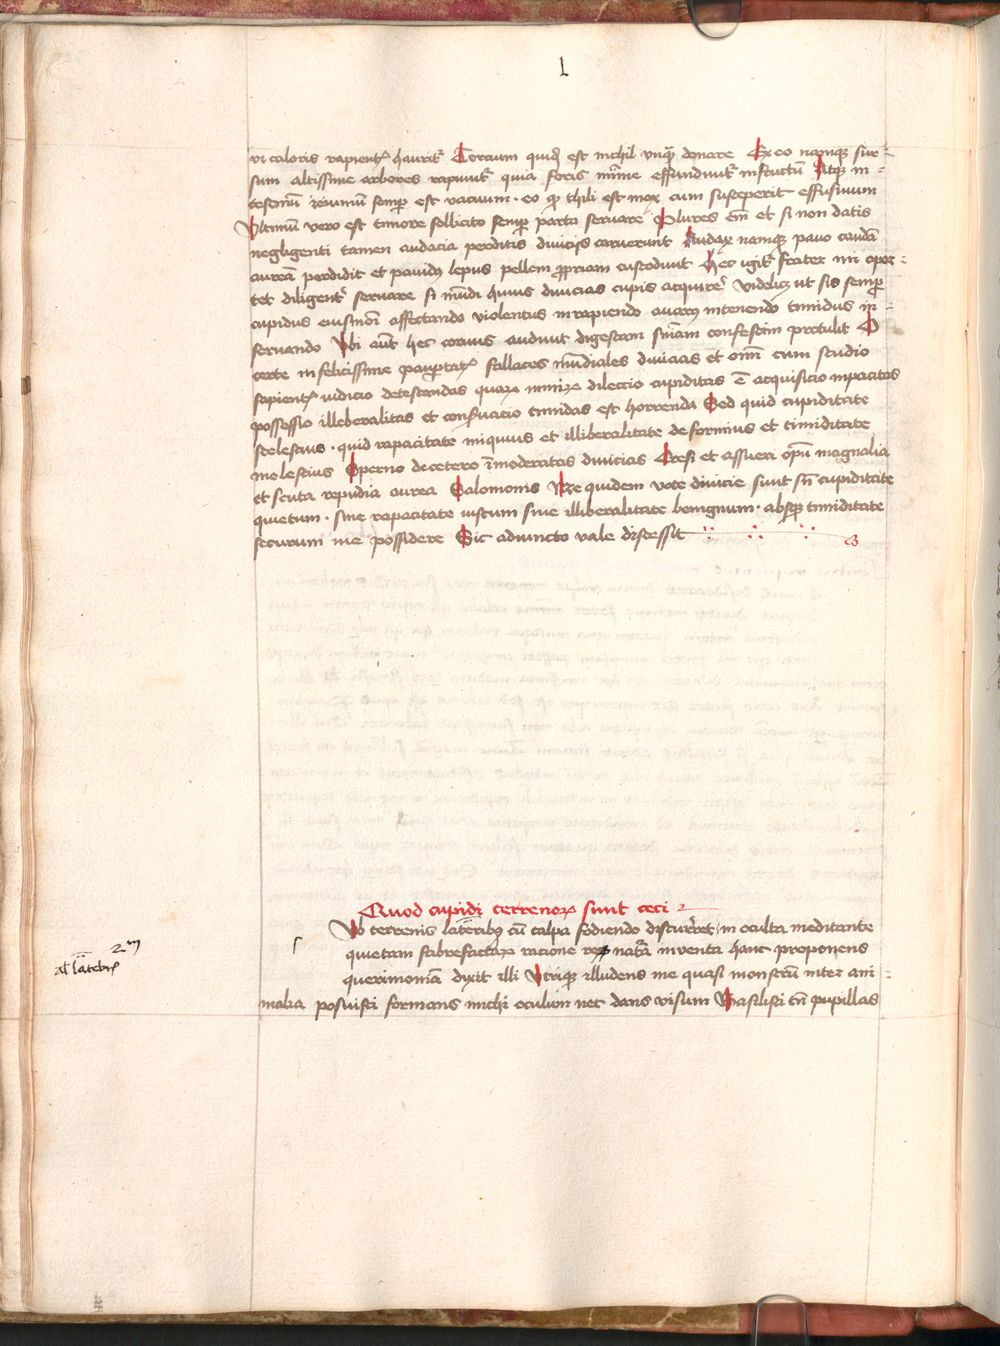 l
vi caloris rapient᷑ haurit᷑ Tercium quid est nichil unq̄ᷓ donare Ex eo namqꝫ sur
sum altissime arbores rapiunt᷑ quia foris minime effundunt᷑ infructū Atqꝫ in
semper est vacuum · eo ꝙ est mox cum susceperit effusiuum
Ultimū vero est timore sollicito semꝑ parta seruare Plures em̄ et si non datis
negligenti tamen audacia perditis diuicijs caruerunt Audax namqꝫ pauo caudā
aureā perdidit et pauidꝰ lepus pellem ꝓpriam custodiuit Hec igit᷑ frater mi opor
tet diligent᷑ seruare si mūdi huius diuicias cupis acquirere videlicꝫ ut sis semꝑ
cupidus affectando violentus in rapiendo auarꝰ in tenendo timidus in
seruando Ubi aūt hec coruus audiuit digestam sniam confestim protulit O
certe infelicissime fallaces mūdiales diuicias et omī cum studio
sapient᷑ iudicio detestandas quaꝝ nimiꝝ dileccio cupiditas ē acquisicio rapacitas
possessio illiberalitas et conseruacio timidas est horrenda Sed quid cupiditate
scelestius · quid rapacitate iniquius et illiberalitate deformius et timiditate
molestius Sperno decetero īmoderatas diuicias Cresi et assueri opū magnalia
et scuta repudia aurea Salomonis Nꝛe quidem vere diuicie sunt sn̄ cupiditate
quietum · sine rapacitate iustum sine illiberalitate benignum · absqꝫ timiditate
securum me possidere Sic adiuncto vale discessit
Quod cupidi terrenoꝝ sunt ceci
Sub terrenis lateribꝫ cū talpa fodiendo discurreret in oculta meditante
quietam fabrefactaꝝ racione natā inuenta hanc proponens
querimoniā dixit illi Utiqꝫ illudens me quasi monstrū inter ani
malia posuisti formans michi oculum nec dans visum Basilisci em̄ pupillas
2m
al̄ latebris